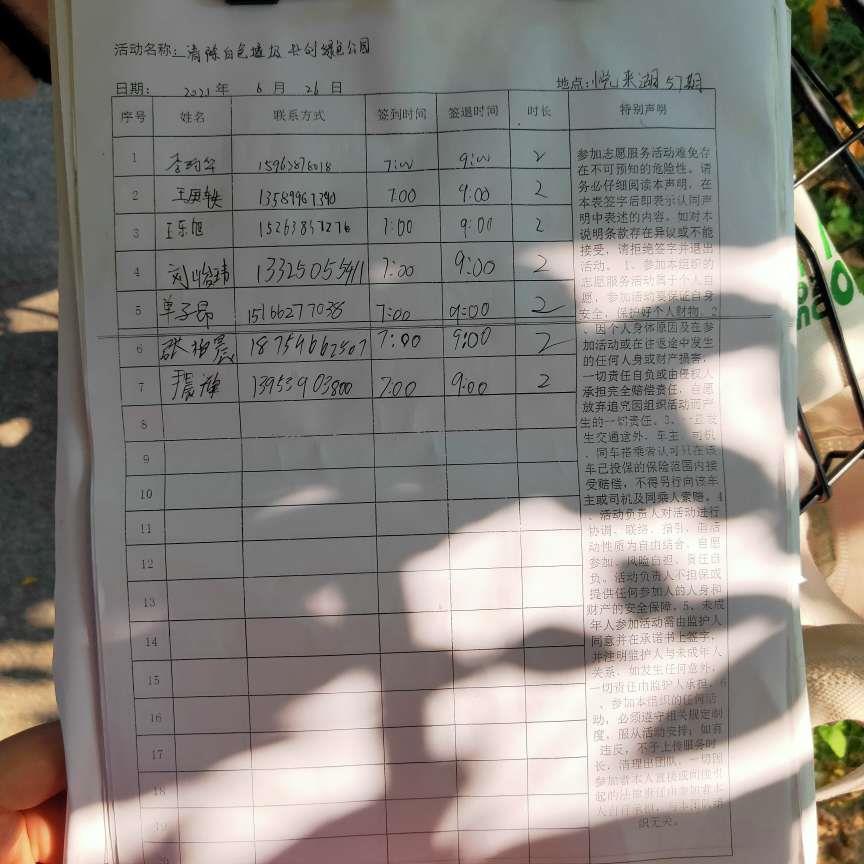 活动名称: 清除白色垃圾 共创绿色公园
日期: 2021 年 6 月 26 日 地点: 悦来湖57期
序号 姓名 联系方式 签到时间 签退时间 时长 特别声明
1 15963878018 7:00 9:00 2
2 13589967390 7:00 9:00 2
3 王乐旭 15263857276 7:00 9:00 2
4 7:00 9:00 2
5 单子昂 15166277038 7:00 9:00 2
6 18754662507 7:00 9:00 2
7 13953903800 7:00 9:00 2
8
9
10
11
12
13
14
15
16
17
18
19
参加志愿服务活动难免存
在不可预知的危险性。请
务必仔细阅读本声明,在
本表签字后即表示认同声
明中表述的内容。如对本
说明条款存在异议或不能
接受,请拒绝签字并退出
活动。 1、参加本组织的
志愿服务活动属于个人自
愿,参加活动要保证自身
安全,保护好个人财物。2
、因个人身体原因及在参
加活动或在往返途中发生
的任何人身或财产损害,
一切责任自负或由侵权人
承担完全赔偿责任,自愿
放弃追究因组织活动而产
生的一切责任。3、一旦发
生交通意外,车主、司机
、同车搭乘者认可只在该
车已投保的保险范围内接
受赔偿,不得另行向该车
主或司机及同乘人索赔。4
、活动负责人对活动进行
协调、联络、指引,但活
动性质为自由结合、自愿
参加、风险自担、责任自
负。活动负责人不担保或
提供任何参加人的人身和
财产的安全保障。5、未成
年人参加活动需由监护人
同意并在承诺书上签字,
并注明监护人与未成年人
关系,如发生任何意外,
一切责任由监护人承担。6
、参加本组织的任何活
动,必须遵守相关规定制
度,服从活动安排;如有
违反,不予上传服务时
长,清理出团队,一切因
参加者本人直接或间接引
起的法律责任由参加者本
人自行承担,与本团队组
织无关。